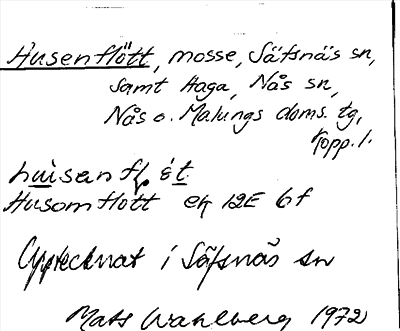 Husenflött, mosse, Säfsnäs sn,
samt Haga, Nås sn,
Nås o. Malungs doms. tg,
Kopp. l.
Husomflott ek 12E 6f
Upptecknat i Säfsnäs sn
Mats Wahlberg 1972